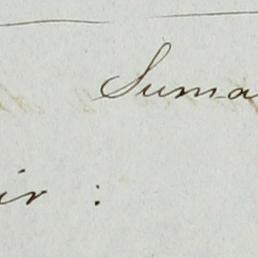 Suma
ir :